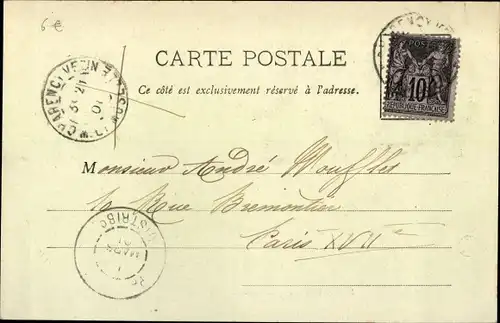 6 €
CARTE POSTALE
Ce côté est exclusivement réservé à l'adresse.
POSTES
10
RÉPUBLIQUE FRANÇAISE
Monsieur André Mouffles
10 Rue Bremontier
Paris XVIIe
DISTRIBON
1
MARS
01